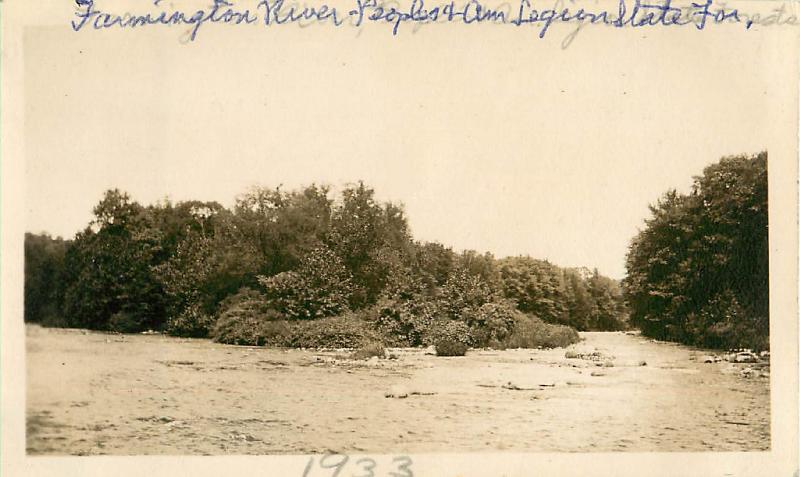 Farmington River - Peoples & Am Legion State For,
1933